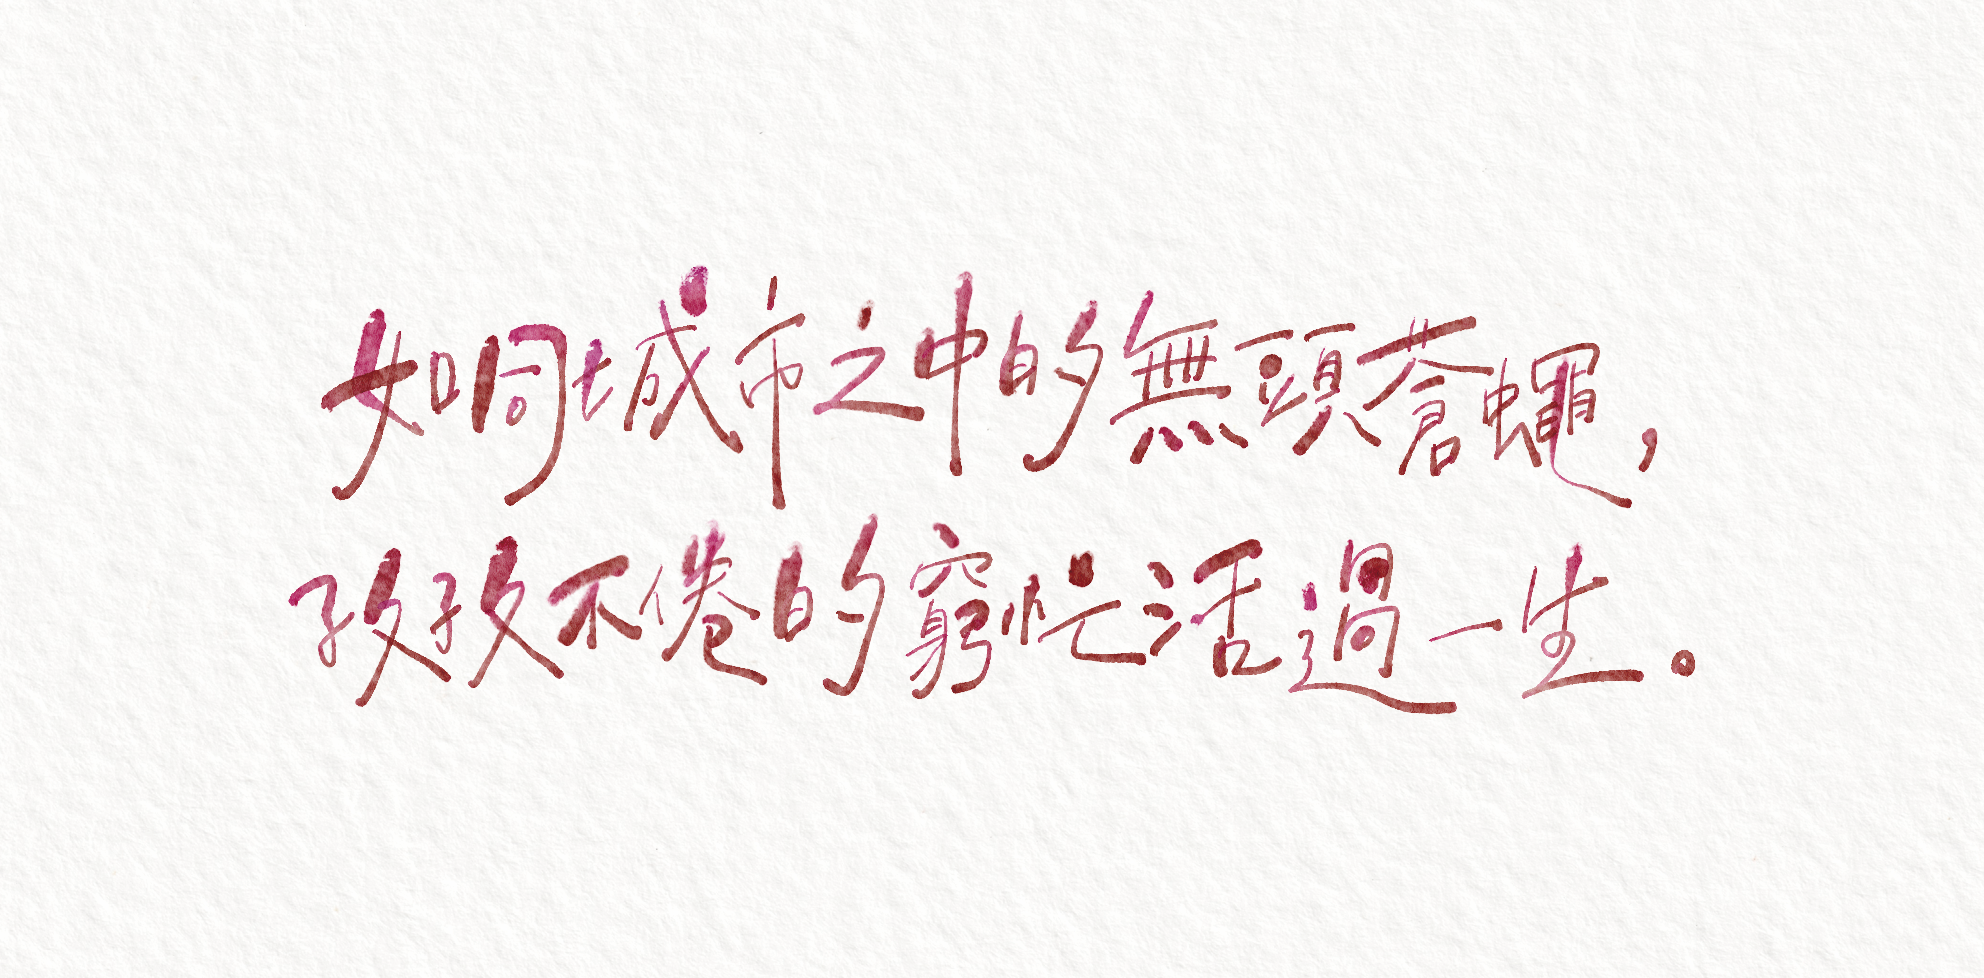 如同城市之中的無頭蒼蠅，
孜孜不倦的窮忙活過一生。